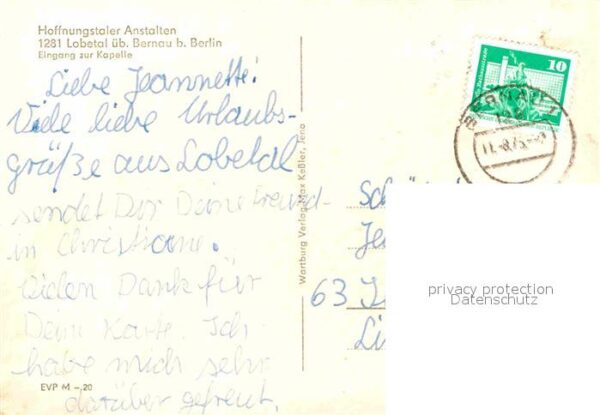 Hoffnungstaler Anstalten
1281 Lobetal üb. Bernau b. Berlin
Eingang zur Kapelle
Liebe Jeannette!
Viele liebe Urlaubs-
grüße aus Lobetal
sendet Dir Deine Freund-
in Christiane.
Vielen Dank für
Deine Karte. Ich
habe mich sehr
darüber gefreut.
EVP M -,20
Wartburg Verlag Max Keßler, Jena
10
BERNAU
Jea
63
privacy protection
Datenschutz